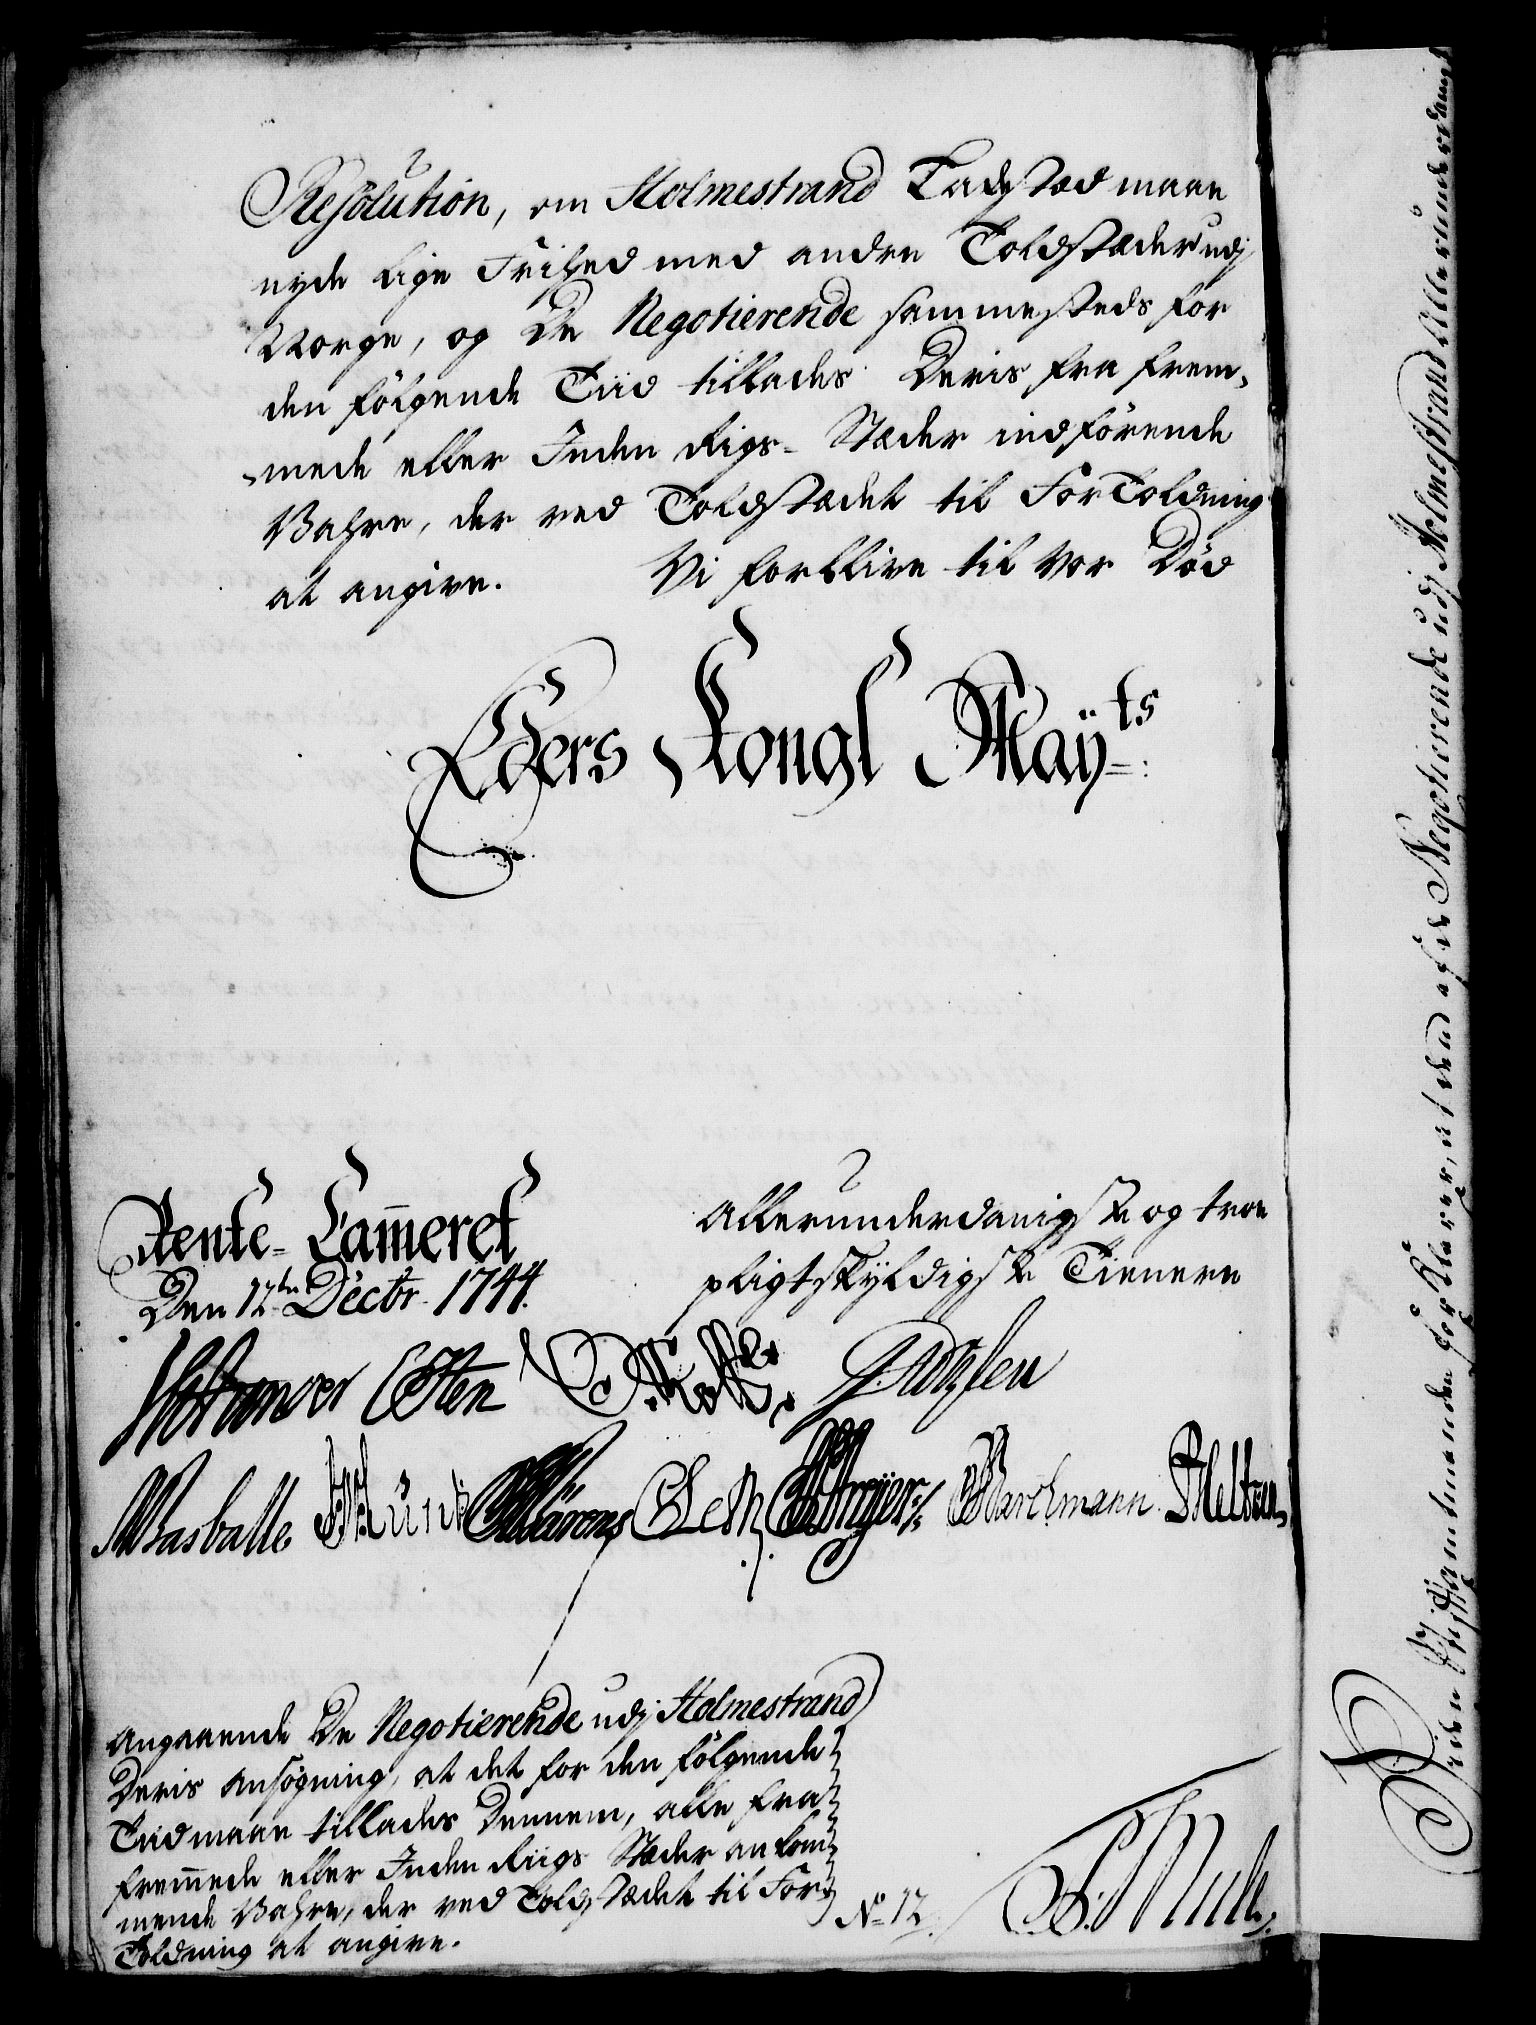 Resolution, om Holmestrand Ladestæd maae
nyde lige Frihed med andre Toldstæder udj
Norge, og De Negotierende sammesteds for
den fölgende Tiid tillades Deris fra frem-
mede eller Inden Rigs-Stæder indförende
Vahre, der ved Toldstædet til Fortoldning
at angive. Vi forblive til vor Död
Eders Kongl May:ts
Rente-Cam̅eret
Den 12te Decbr. 1744.
Allerunderdanigste og troe
pligtskyldigste Tienere
Basballe
Barchmann
Angaaende De Negotierende udj Holmestrand
Deris Ansögning, at det for den fölgende
Tiid maae tillades Dennem, alle fra
frem̅ede eller Inden Riigs Stæder ankom-
mende Vahre, der ved Toldstædet til For-
toldning at angive.
No 12.
Siden Stiftamtmanden forklarer, at den af de Negotierende udj Holmestrand Allerunderdanigst